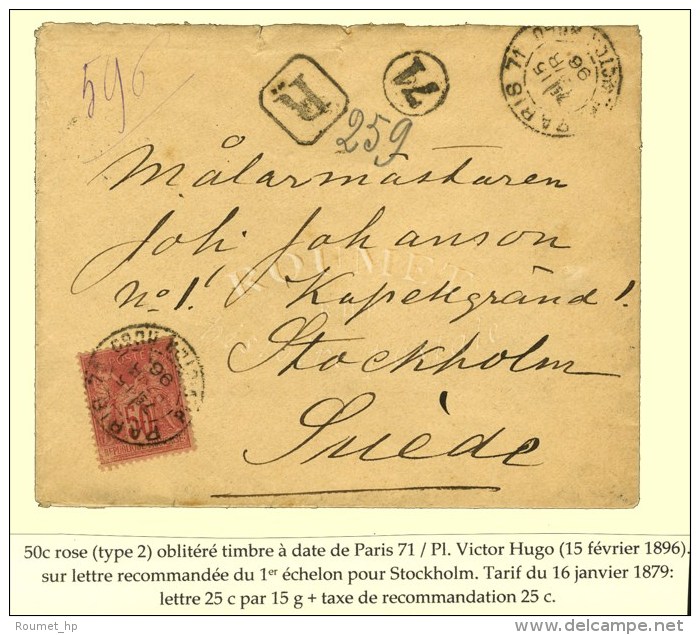 596
R
71
259
PARIS 71
96
Målarmästaren
Joh. Johanson
No 1. Kapellgränd 1.
ROUMET
Stockholm
Suède
PARIS 71
96
50
50c rose (type 2) oblitéré timbre à date de Paris 71 / Pl. Victor Hugo (15 février 1896).
sur lettre recommandée du 1er échelon pour Stockholm. Tarif du 16 janvier 1879:
lettre 25 c par 15 g + taxe de recommandation 25 c.
Roumet_hp
delcampe.net